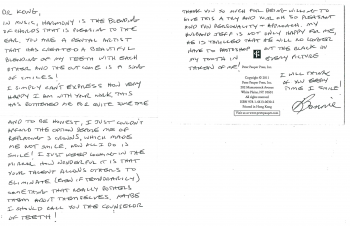 DR. KONG,
IN MUSIC, HARMONY IS THE BLENDING
OF CHORDS THAT IS PLEASING TO THE
EAR. YOU ARE A DENTAL ARTIST
THAT HAS CREATED A BEAUTIFUL
BLENDING OF MY TEETH WITH EACH
OTHER AND THE OUTCOME IS A SONG
OF SMILES!
I SIMPLY CAN'T EXPRESS HOW VERY
HAPPY I AM WITH YOUR WORK. THIS
HAS BOTHERED ME FOR QUITE SOME TIME
AND TO BE HONEST, I JUST COULDN'T
THE OPTION BEFORE ME OF
CROWNS, WHICH MADE
ME NOT SMILE. NOW ALL I DO IS
SMILE! I JUST KEEP LOOKING IN THE
MIRROR. HOW WONDERFUL IT IS THAT
YOUR TALENT ALLOWS OTHERS TO
ELIMINATE (EVEN IF TEMPORARILY)
SOMETHING THAT REALLY BOTHERS
THEM ABOUT THEMSELVES. MAYBE
I SHOULD CALL YOU THE COUNSELOR
OF TEETH!
THANK YOU SO MUCH FOR BEING WILLING TO
GIVE THIS A TRY AND WITH SO PLEASANT
AND FUN PERSONALITY + APPROACH. MY
HUSBAND JEFF IS NOT ONLY HAPPY FOR ME,
HE IS THRILLED THAT HE WILL NO LONGER
HAVE TO PHOTOSHOP OUT THE BLACK IN
MY TOOTH IN EVERY PICTURE
TAKEN OF ME!
I WILL THINK
OF YOU EVERY
TIME I SMILE!
Bonnie
Copyright © 2011
Peter Pauper Press, Inc.
202 Mamaroneck Avenue
White Plains, NY 10601
All rights reserved
Printed in Hong Kong
Visit us at www.peterpauper.com